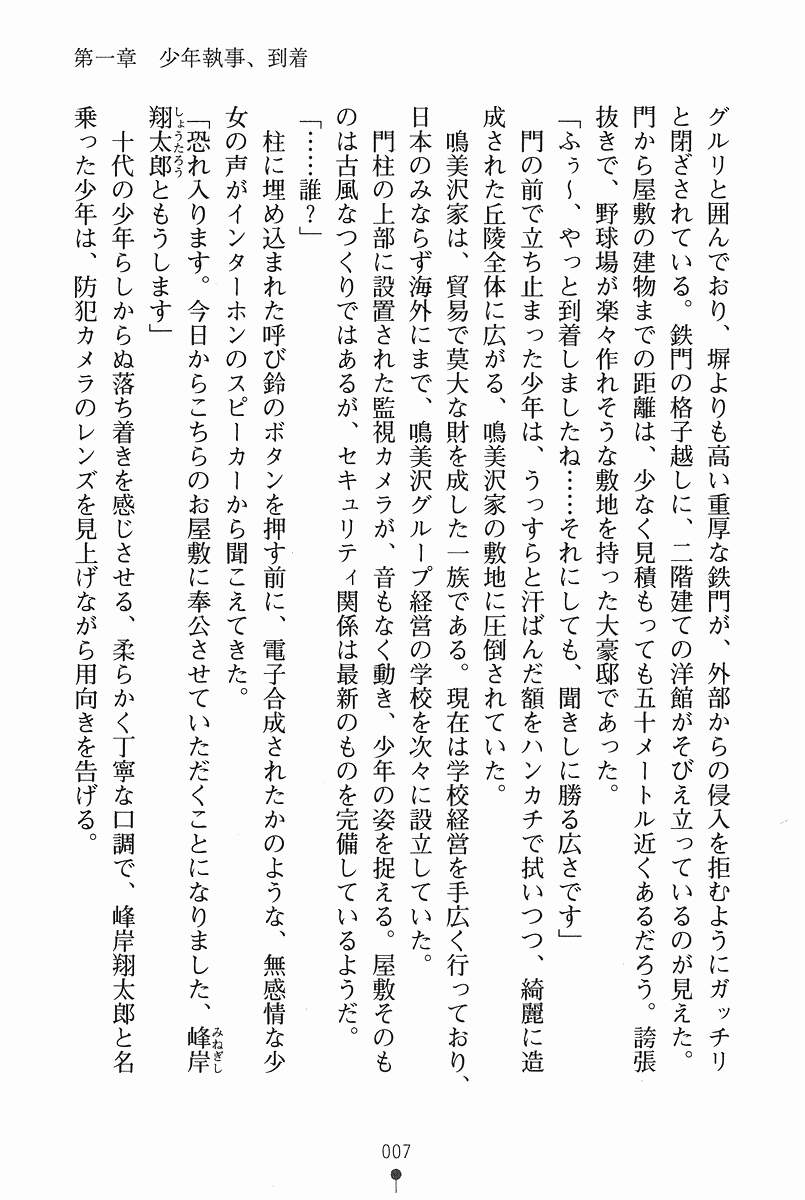 第一章　少年執事、到着
グルリと囲んでおり、塀よりも高い重厚な鉄門が、外部からの侵入を拒むようにガッチリ
と閉ざされている。鉄門の格子越しに、二階建ての洋館がそびえ立っているのが見えた。
門から屋敷の建物までの距離は、少なく見積もっても五十メートル近くあるだろう。誇張
抜きで、野球場が楽々作れそうな敷地を持った大豪邸であった。
「ふぅ～、やっと到着しましたね……それにしても、聞きしに勝る広さです」
門の前で立ち止まった少年は、うっすらと汗ばんだ額をハンカチで拭いつつ、綺麗に造
成された丘陵全体に広がる、鳴美沢家の敷地に圧倒されていた。
鳴美沢家は、貿易で莫大な財を成した一族である。現在は学校経営を手広く行っており、
日本のみならず海外にまで、鳴美沢グループ経営の学校を次々に設立していた。
門柱の上部に設置された監視カメラが、音もなく動き、少年の姿を捉える。屋敷そのも
のは古風なつくりではあるが、セキュリティ関係は最新のものを完備しているようだ。
「……誰？」
柱に埋め込まれた呼び鈴のボタンを押す前に、電子合成されたかのような、無感情な少
女の声がインターホンのスピーカーから聞こえてきた。
「恐れ入ります。今日からこちらのお屋敷に奉公させていただくことになりました、峰岸
みねぎし
翔太郎ともうします」
しょうたろう
十代の少年らしからぬ落ち着きを感じさせる、柔らかく丁寧な口調で、峰岸翔太郎と名
乗った少年は、防犯カメラのレンズを見上げながら用向きを告げる。
007